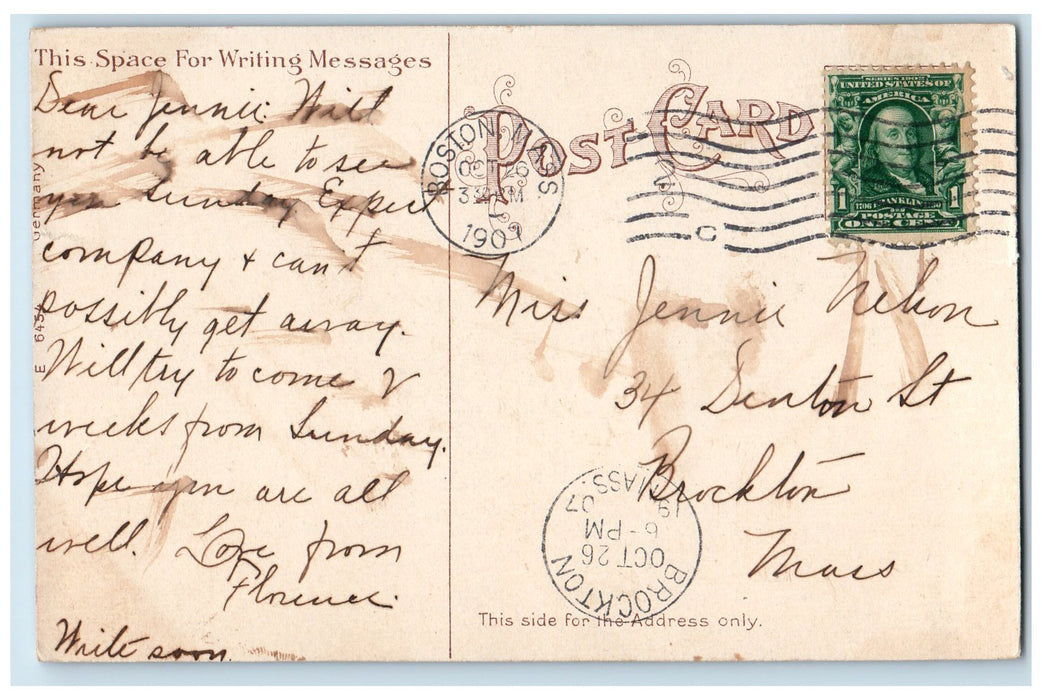 This Space For Writing Messages
Dear Jennie: Will
not be able to see
you Sunday. Expect
company & can't
possibly get away.
Will try to come 2
weeks from Sunday.
Hope you are all
well. Love from
Florence.
Write soon.
Germany
E 645
POST CARD
BOSTON, MASS
OCT 26
3 PM
1907
C
SERIES 1902
UNITED STATES OF
AMERICA
1 1
1706 FRANKLIN 1790
POSTAGE
ONE CENT
Miss Jennie Nelson
34 Denton St
Brockton
Mass
BROCKTON
OCT 26
6-PM
1907
MASS.
This side for the Address only.